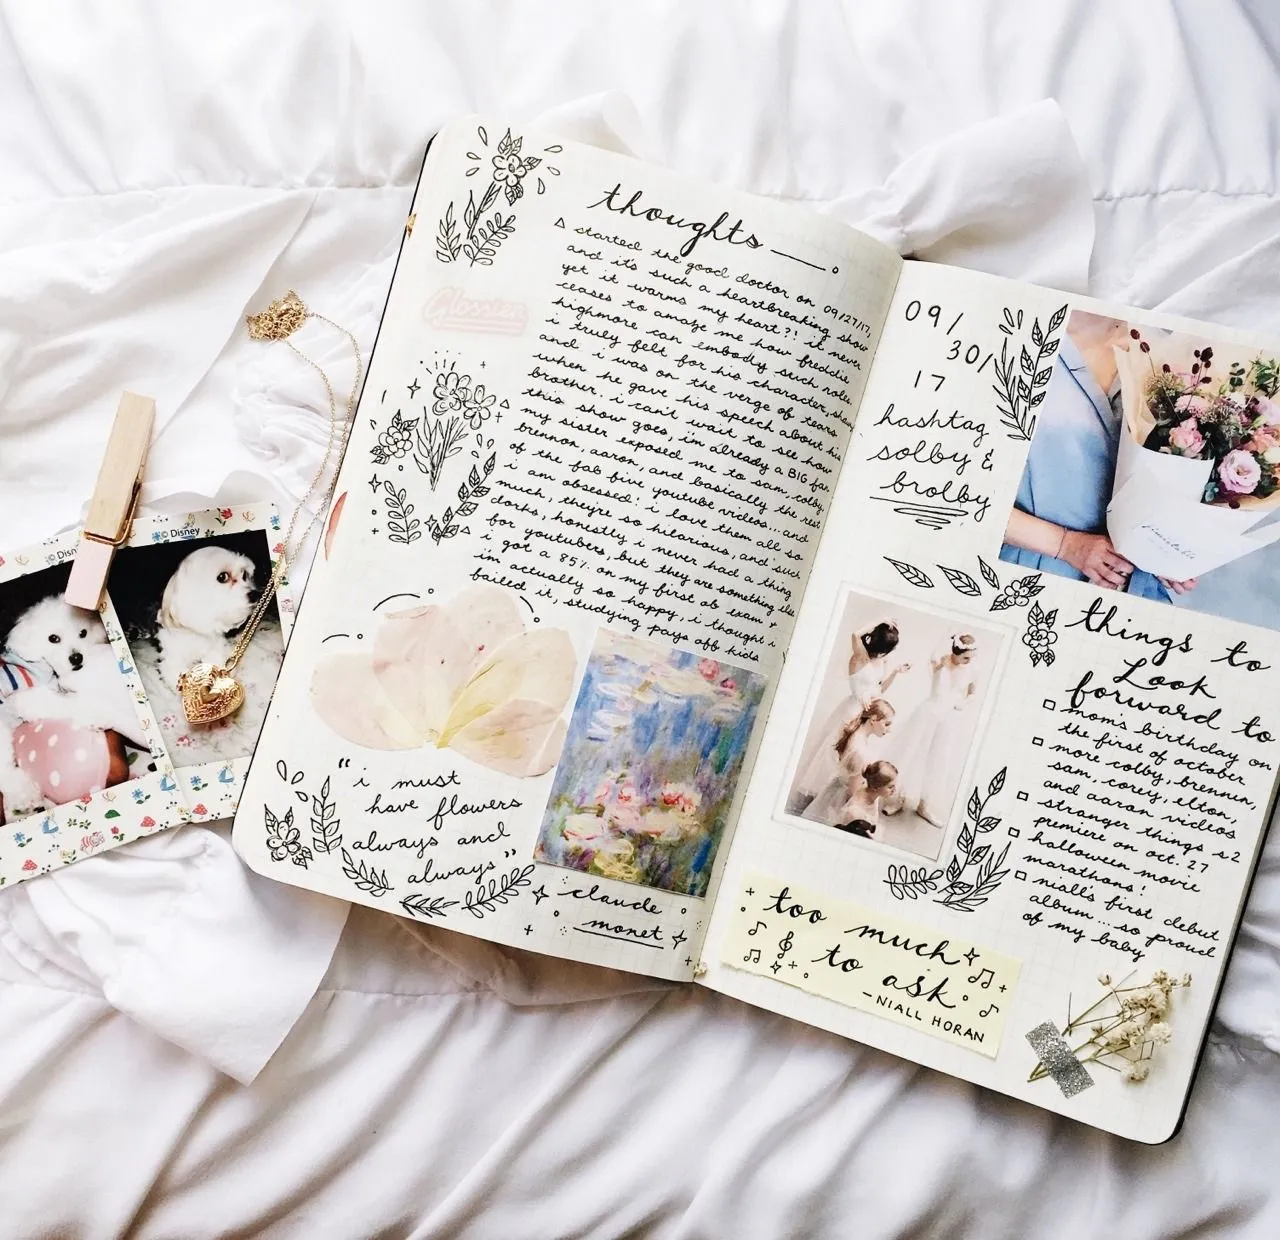 © Disney
© Disney
thoughts
started the good doctor on 09/27/17,
and it's such a heartbreaking show
yet it warms my heart?! it never
ceases to amaze me how freddie
highmore can embody such roles.
i truly felt for his character, shaun
and i was on the verge of tears
when he gave his speech about his
brother. i can't wait to see how
this show goes, i'm already a BIG fan.
my sister exposed me to sam, colby,
brennon, aaron, and basically the rest
of the fab five youtube videos...and
i am obsessed! i love them all so
much, they're so hilarious, and such
dorks, honestly i never had a thing
for youtubers, but they are something else
i got a 85% on my first ob exam +
i'm actually so happy, i thought i
failed it, studying pays off kids
Glossier
"i must
have flowers
always and
always"
claude
monet
09/
30/
17
hashtag
solby &
brolby
things to
Look
forward to
mom's birthday on
the first of october
more colby, brennin,
sam, corey, elton,
and aaron videos
stranger things s2
premiere on oct. 27
halloween movie
marathons!
niall's first debut
album...so proud
of my baby
too much
to ask
-NIALL HORAN